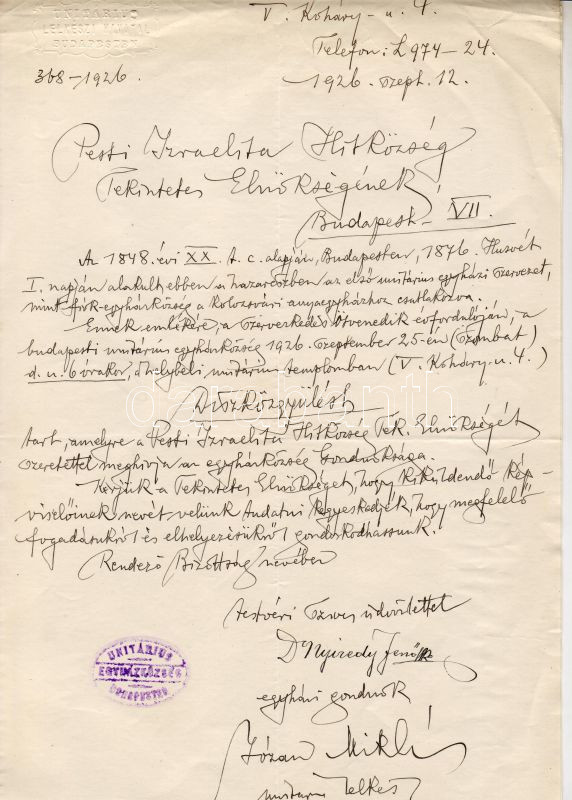 UNITÁRIUS
LELKÉSZI HIVATAL
BUDAPESTEN
V. Koháry-u. 4.
Telefon: L 974-24
368-1926.
1926. szept. 12.
Pesti Izraelita Hitközség
Tekintetes Elnökségének
Budapest VII.
Az 1848. évi XX. t. c. alapján, Budapesten, 1876. Husvét
I. napján alakult, ebben a hazarészben az első unitárius egyházi szervezet,
mint fiók-egyházközség a kolozsvári anyaegyházhoz csatlakozva.
Ennek emlékére, a szervezkedés ötvenedik évfordulóján, a
budapesti unitárius egyházközség 1926. szeptember 25-én (szombat)
d. u. 6 órakor, a helybeli unitárius templomban (V. Koháry-u. 4.)
Díszközgyűlést
tart, amelyre a Pesti Izraelita Hitközség Tek. Elnökségét
szeretettel meghívja az egyházközség Gondnoksága.
Kérjük a Tekintetes Elnökséget, hogy kiküldendő kép-
viselőinek nevét velünk tudatni kegyeskedjék, hogy megfelelő
fogadásukról és elhelyezésükről gondoskodhassunk.
Rendező Bizottság nevében
testvéri szives üdvözlettel
Dr Nyiredy Jenő
egyházi gondnok
Józan Miklós
unitárius lelkész
UNITÁRIUS
EGYHÁZKÖZSÉG
BUDAPESTEN
darabanth